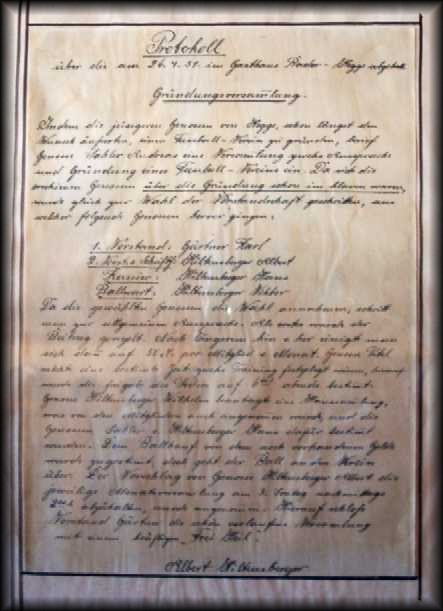 Protokoll
über die am 26.4.31. im Gasthaus Hegge
Gründungsversammlung.
Indem die jüngeren Genossen von Hegge, schon längst den
Wunsch äuserten, einen Faustball-Verein zu gründen, berief
Genosse Andreas eine Versammlung zwecks Aussprache
und Gründung eines Faustball-Vereins ein. Da sich die
Genossen über die Gründung schon im klaren waren,
wurde gleich zur Wahl der Vorstandschaft geschritten, aus
welcher folgende Genossen hervor gingen:
1. Vorstand: Gärtner Karl
2. Vorst. & Schriftf. Hiltensberger Albert
Kassier: Hiltensberger Hans
Ballwart: Hiltensberger Viktor
Da die gewählten Genossen die Wahl annahmen, schritt
man zur allgemeinen Aussprache. Als erstes wurde der
Beitrag geregelt. Nach längerem hin & her einigt man
sich dann auf pro Mitglied & Monat. Genosse
möchte eine bestimmte Zeit zwecks Training festgelegt wissen, hierauf
wurde die auf 6 abends bestimmt.
Genosse Hiltensberger Wilhelm beantragt eine
was von den Mitgliedern auch angenommen wurde, und die
Genossen & Hiltensberger Hans dafür bestimmt
wurden. Dem Ballkauf von dem noch vorhandenen Gelde
wurde zugestimmt, doch geht der Ball an den Verein
über. Der Vorschlag von Genosse Hiltensberger Albert die
jeweilige Monatsversammlung am Sonntag nachmittags
abzuhalten, wurde angenommen. Hierauf schloß
Vorstand Gärtner die schön verlaufene Versammlung
mit einem kräftigen „Frei Heil".
Albert Hiltensberger